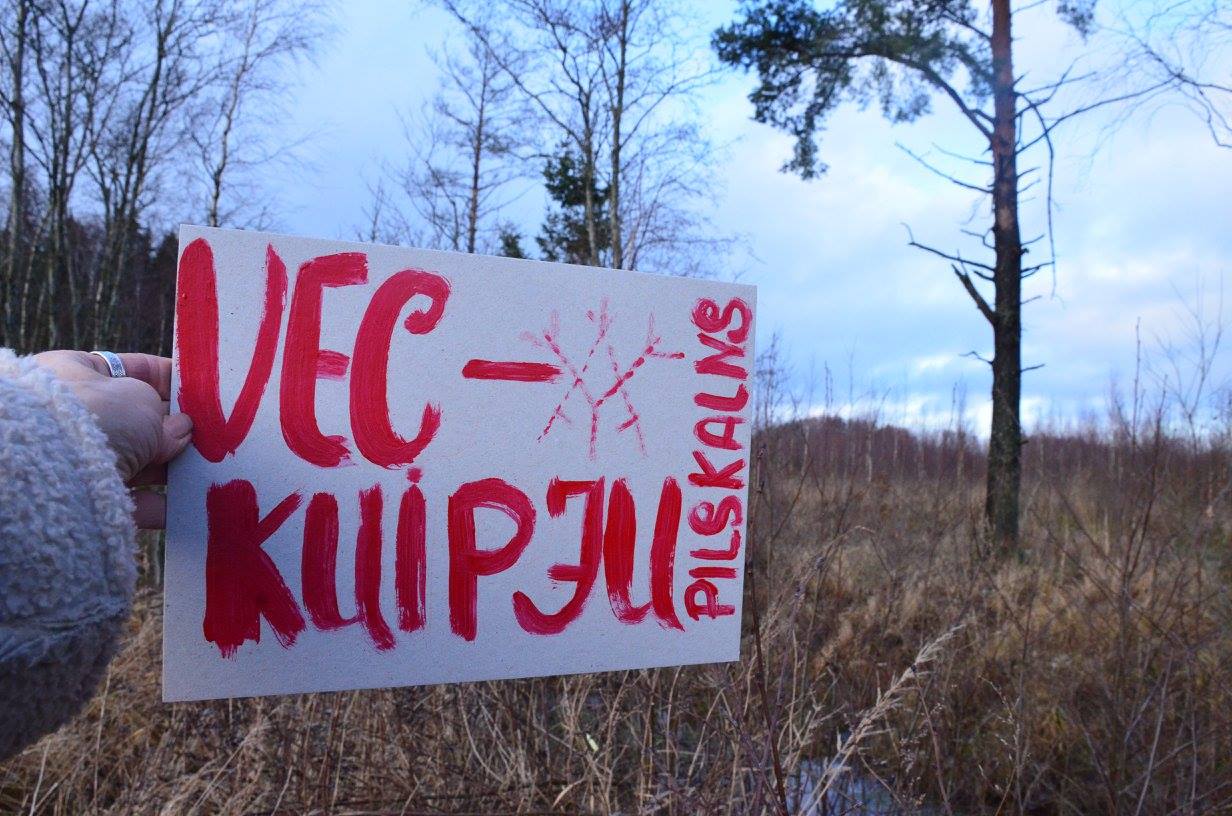 VEC-
KUIPJU
PILSKALNS